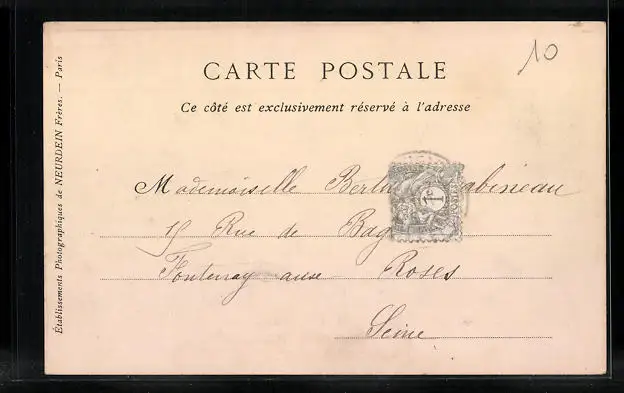 10
CARTE POSTALE
Ce côté est exclusivement réservé à l'adresse
Établissements Photographiques de NEURDEIN Frères. — Paris
Mademoiselle
15 Rue de Bag
Fontenay aux Roses
Seine
1c